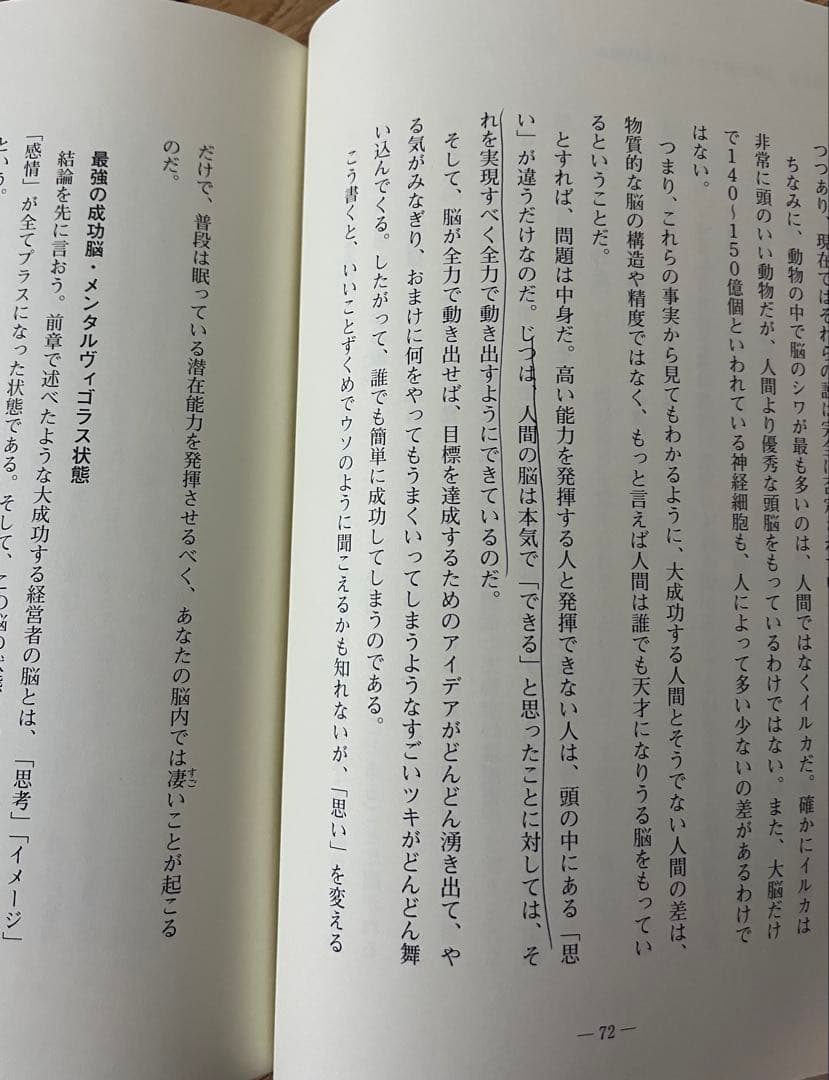 つつあり、現在ではそれらの説は完全に否定
ちなみに、動物の中で脳のシワが最も多いのは、人間ではなくイルカだ。確かにイルカは
非常に頭のいい動物だが、人間より優秀な頭脳をもっているわけではない。また、大脳だけ
で140〜150億個といわれている神経細胞も、人によって多い少ないの差があるわけで
はない。
つまり、これらの事実から見てもわかるように、大成功する人間とそうでない人間の差は、
物質的な脳の構造や精度ではなく、もっと言えば人間は誰でも天才になりうる脳をもってい
るということだ。
とすれば、問題は中身だ。高い能力を発揮する人と発揮できない人は、頭の中にある「思
い」が違うだけなのだ。じつは、人間の脳は本気で「できる」と思ったことに対しては、そ
れを実現すべく全力で動き出すようにできているのだ。
そして、脳が全力で動き出せば、目標を達成するためのアイデアがどんどん湧き出て、や
る気がみなぎり、おまけに何をやってもうまくいってしまうようなすごいツキがどんどん舞
い込んでくる。したがって、誰でも簡単に成功してしまうのである。
こう書くと、いいことずくめでウソのように聞こえるかも知れないが、「思い」を変える
—72—
だけで、普段は眠っている潜在能力を発揮させるべく、あなたの脳内では凄いことが起こる
すご
のだ。
最強の成功脳・メンタルヴィゴラス状態
結論を先に言おう。前章で述べたような大成功する経営者の脳とは、「思考」「イメージ」
「感情」が全てプラスになった状態である。そして、この脳の状態
という。